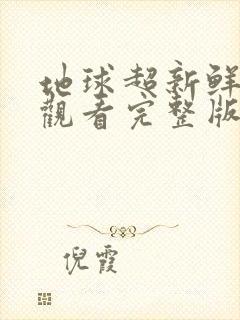 地球超新鲜
觀看完整版
倪霞